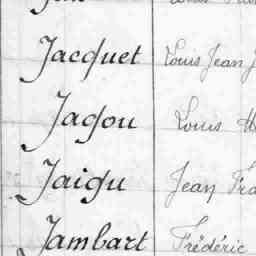 Jacquet Louis Jean
Jagou Louis
Jaigu Jean
Jambart Frédéric